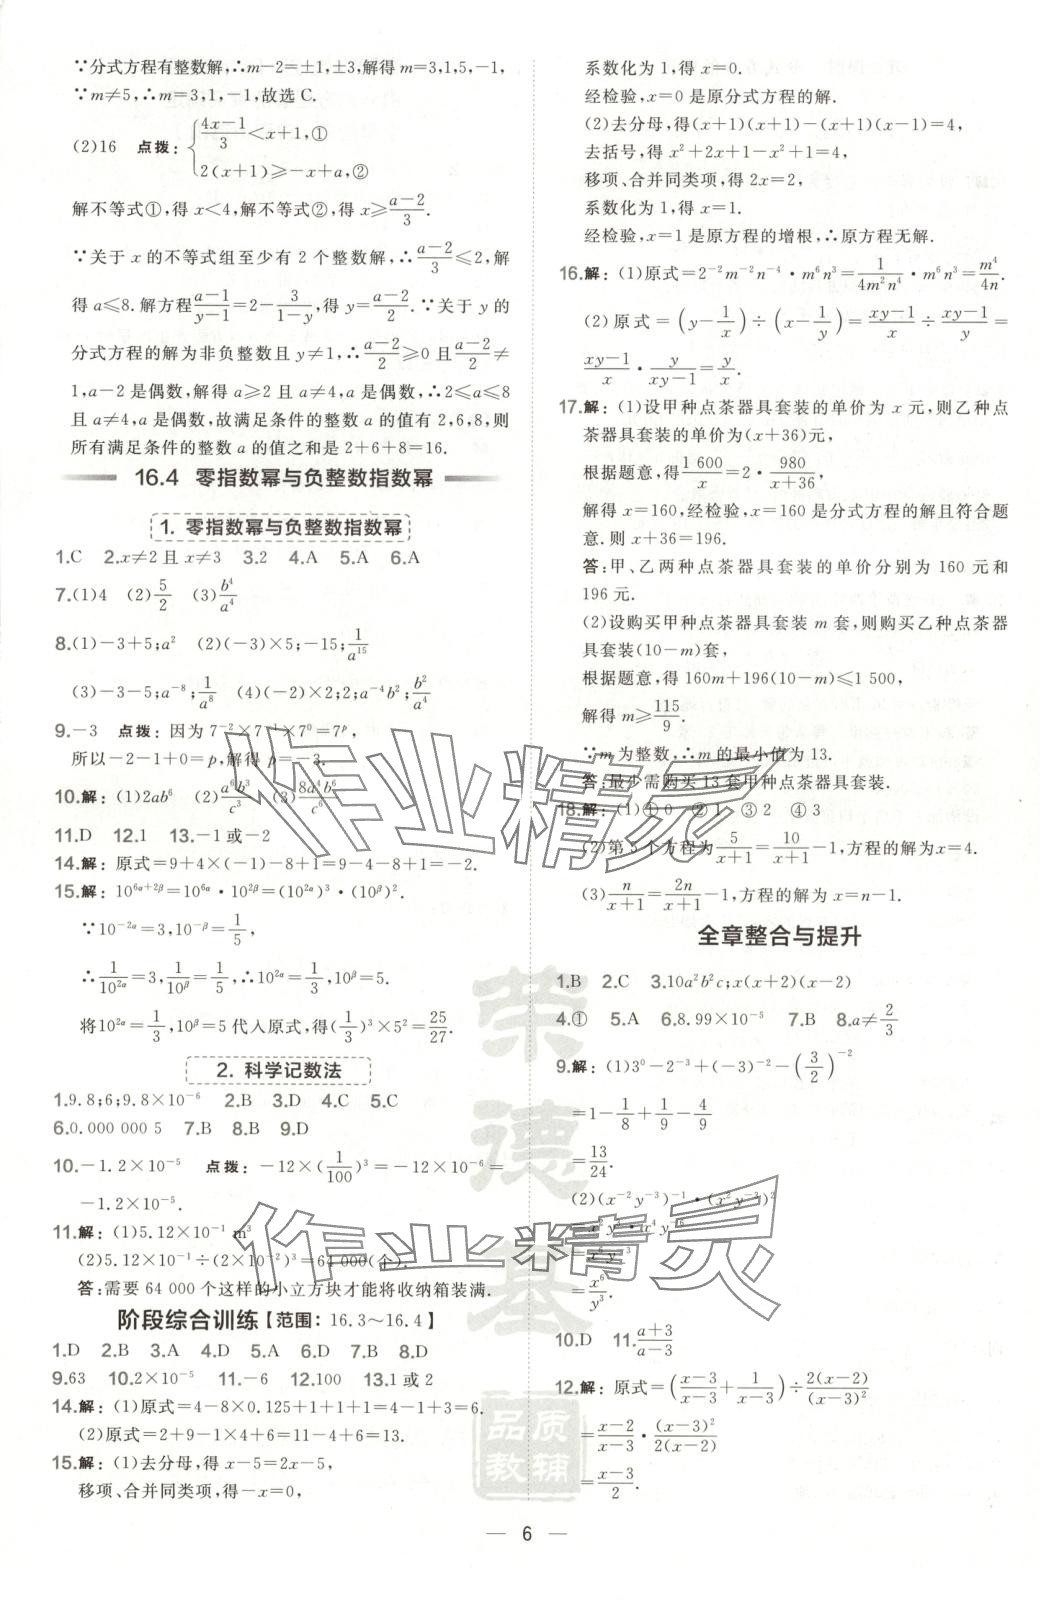 ∵分式方程有整数解,∴m-2=±1,±3,解得 m=3,1,5,-1,
∵m≠5,∴m=3,1,-1,故选 C.
(2)16 点拨:{(4x-1)/3<x+1,①
2(x+1)≥-x+a,②
解不等式①,得 x<4,解不等式②,得 x≥(a-2)/3.
∵关于 x 的不等式组至少有 2 个整数解,∴(a-2)/3≤2,解
得 a≤8.解方程(a-1)/(y-1)=2-3/(1-y),得 y=(a-2)/2.∵关于 y 的
分式方程的解为非负整数且 y≠1,∴(a-2)/2≥0 且(a-2)/2≠
1,a-2 是偶数,解得 a≥2 且 a≠4,a 是偶数,∴2≤a≤8
且 a≠4,a 是偶数,故满足条件的整数 a 的值有 2,6,8,则
所有满足条件的整数 a 的值之和是 2+6+8=16.
16.4 零指数幂与负整数指数幂
1. 零指数幂与负整数指数幂
1.C 2.x≠2 且 x≠3 3.2 4.A 5.A 6.A
7.(1)4 (2)5/2 (3)b⁴/a⁴
8.(1)-3+5;a² (2)(-3)×5;-15;1/a¹⁵
(3)-3-5;a⁻⁸;1/a⁸ (4)(-2)×2;2;a⁻⁴b²;b²/a⁴
9.-3 点拨:因为 7⁻²×7⁻¹×7⁰=7ᵖ,
所以-2-1+0=p,解得 p=-3.
10.解:(1)2ab⁶ (2)a⁶b³/c³ (3)8a⁴b⁵/c⁶
11.D 12.1 13.-1 或-2
14.解:原式=9+4×(-1)-8+1=9-4-8+1=-2.
15.解:10^(6α+2β)=10^(6α)·10^(2β)=(10^(2α))³·(10^β)².
∵10^(-2α)=3,10^(-β)=1/5,
∴1/10^(2α)=3,1/10^β=1/5,∴10^(2α)=1/3,10^β=5.
将10^(2α)=1/3,10^β=5 代入原式,得(1/3)³×5²=25/27.
2. 科学记数法
1.9.8;6;9.8×10⁻⁶ 2.B 3.D 4.C 5.C
6.0.000 000 5 7.B 8.B 9.D
10.-1.2×10⁻⁵ 点拨:-12×(1/100)³=-12×10⁻⁶=
-1.2×10⁻⁵.
11.解:(1)5.12×10⁻¹ m³
(2)5.12×10⁻¹÷(2×10⁻²)³=64 000(个).
答:需要 64 000 个这样的小立方块才能将收纳箱装满.
阶段综合训练【范围:16.3~16.4】
1.D 2.B 3.A 4.D 5.A 6.A 7.B 8.D
9.63 10.2×10⁻⁵ 11.-6 12.100 13.1 或 2
14.解:(1)原式=4-8×0.125+1+1+1=4-1+3=6.
(2)原式=2+9-1×4+6=11-4+6=13.
15.解:(1)去分母,得 x-5=2x-5,
移项、合并同类项,得-x=0,
系数化为 1,得 x=0.
经检验,x=0 是原分式方程的解.
(2)去分母,得(x+1)(x+1)-(x+1)(x-1)=4,
去括号,得 x²+2x+1-x²+1=4,
移项、合并同类项,得 2x=2,
系数化为 1,得 x=1.
经检验,x=1 是原方程的增根,∴原方程无解.
16.解:(1)原式=2⁻²m⁻²n⁻⁴·m⁶n³=1/(4m²n⁴)·m⁶n³=m⁴/4n.
(2)原式=(y-1/x)÷(x-1/y)=(xy-1)/x÷(xy-1)/y=
(xy-1)/x·y/(xy-1)=y/x.
17.解:(1)设甲种点茶器具套装的单价为 x 元,则乙种点
茶器具套装的单价为(x+36)元,
根据题意,得1 600/x=2·980/(x+36),
解得 x=160,经检验,x=160 是分式方程的解且符合题
意.则 x+36=196.
答:甲、乙两种点茶器具套装的单价分别为 160 元和
196 元.
(2)设购买甲种点茶器具套装 m 套,则购买乙种点茶器
具套装(10-m)套,
根据题意,得160m+196(10-m)≤1 500,
解得 m≥115/9.
∵m 为整数,∴m 的最小值为 13.
答:最少需购买 13 套甲种点茶器具套装.
18.解:(1)①0 ②1 ③2 ④3
(2)第 5 个方程为5/(x+1)=10/(x+1)-1,方程的解为x=4.
(3)n/(x+1)=2n/(x+1)-1,方程的解为 x=n-1.
全章整合与提升
1.B 2.C 3.10a²b²c;x(x+2)(x-2)
4.① 5.A 6.8.99×10⁻⁵ 7.B 8.a≠2/3
9.解:(1)3⁰-2⁻³+(-3)⁻²-(3/2)⁻²
=1-1/8+1/9-4/9
=13/24.
(2)(x⁻²y⁻³)⁻¹·(x²y⁻³)²
=x²y³·x⁴y⁻⁶
=x⁶y⁻³
=x⁶/y³.
10.D 11.(a+3)/(a-3)
12.解:原式=((x-3)/(x-3)+1/(x-3))÷2(x-2)/(x-3)²
=(x-2)/(x-3)·(x-3)²/2(x-2)
=(x-3)/2.
6
作业精灵
作业精灵
荣德基
品质教辅